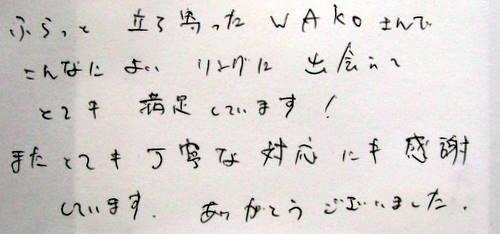 ふらっと 立ち寄った WAKO さんで
こんなに よい リングに 出会えて
とても 満足しています!
またとても丁寧な対応にも感謝
しています. ありがとうございました.